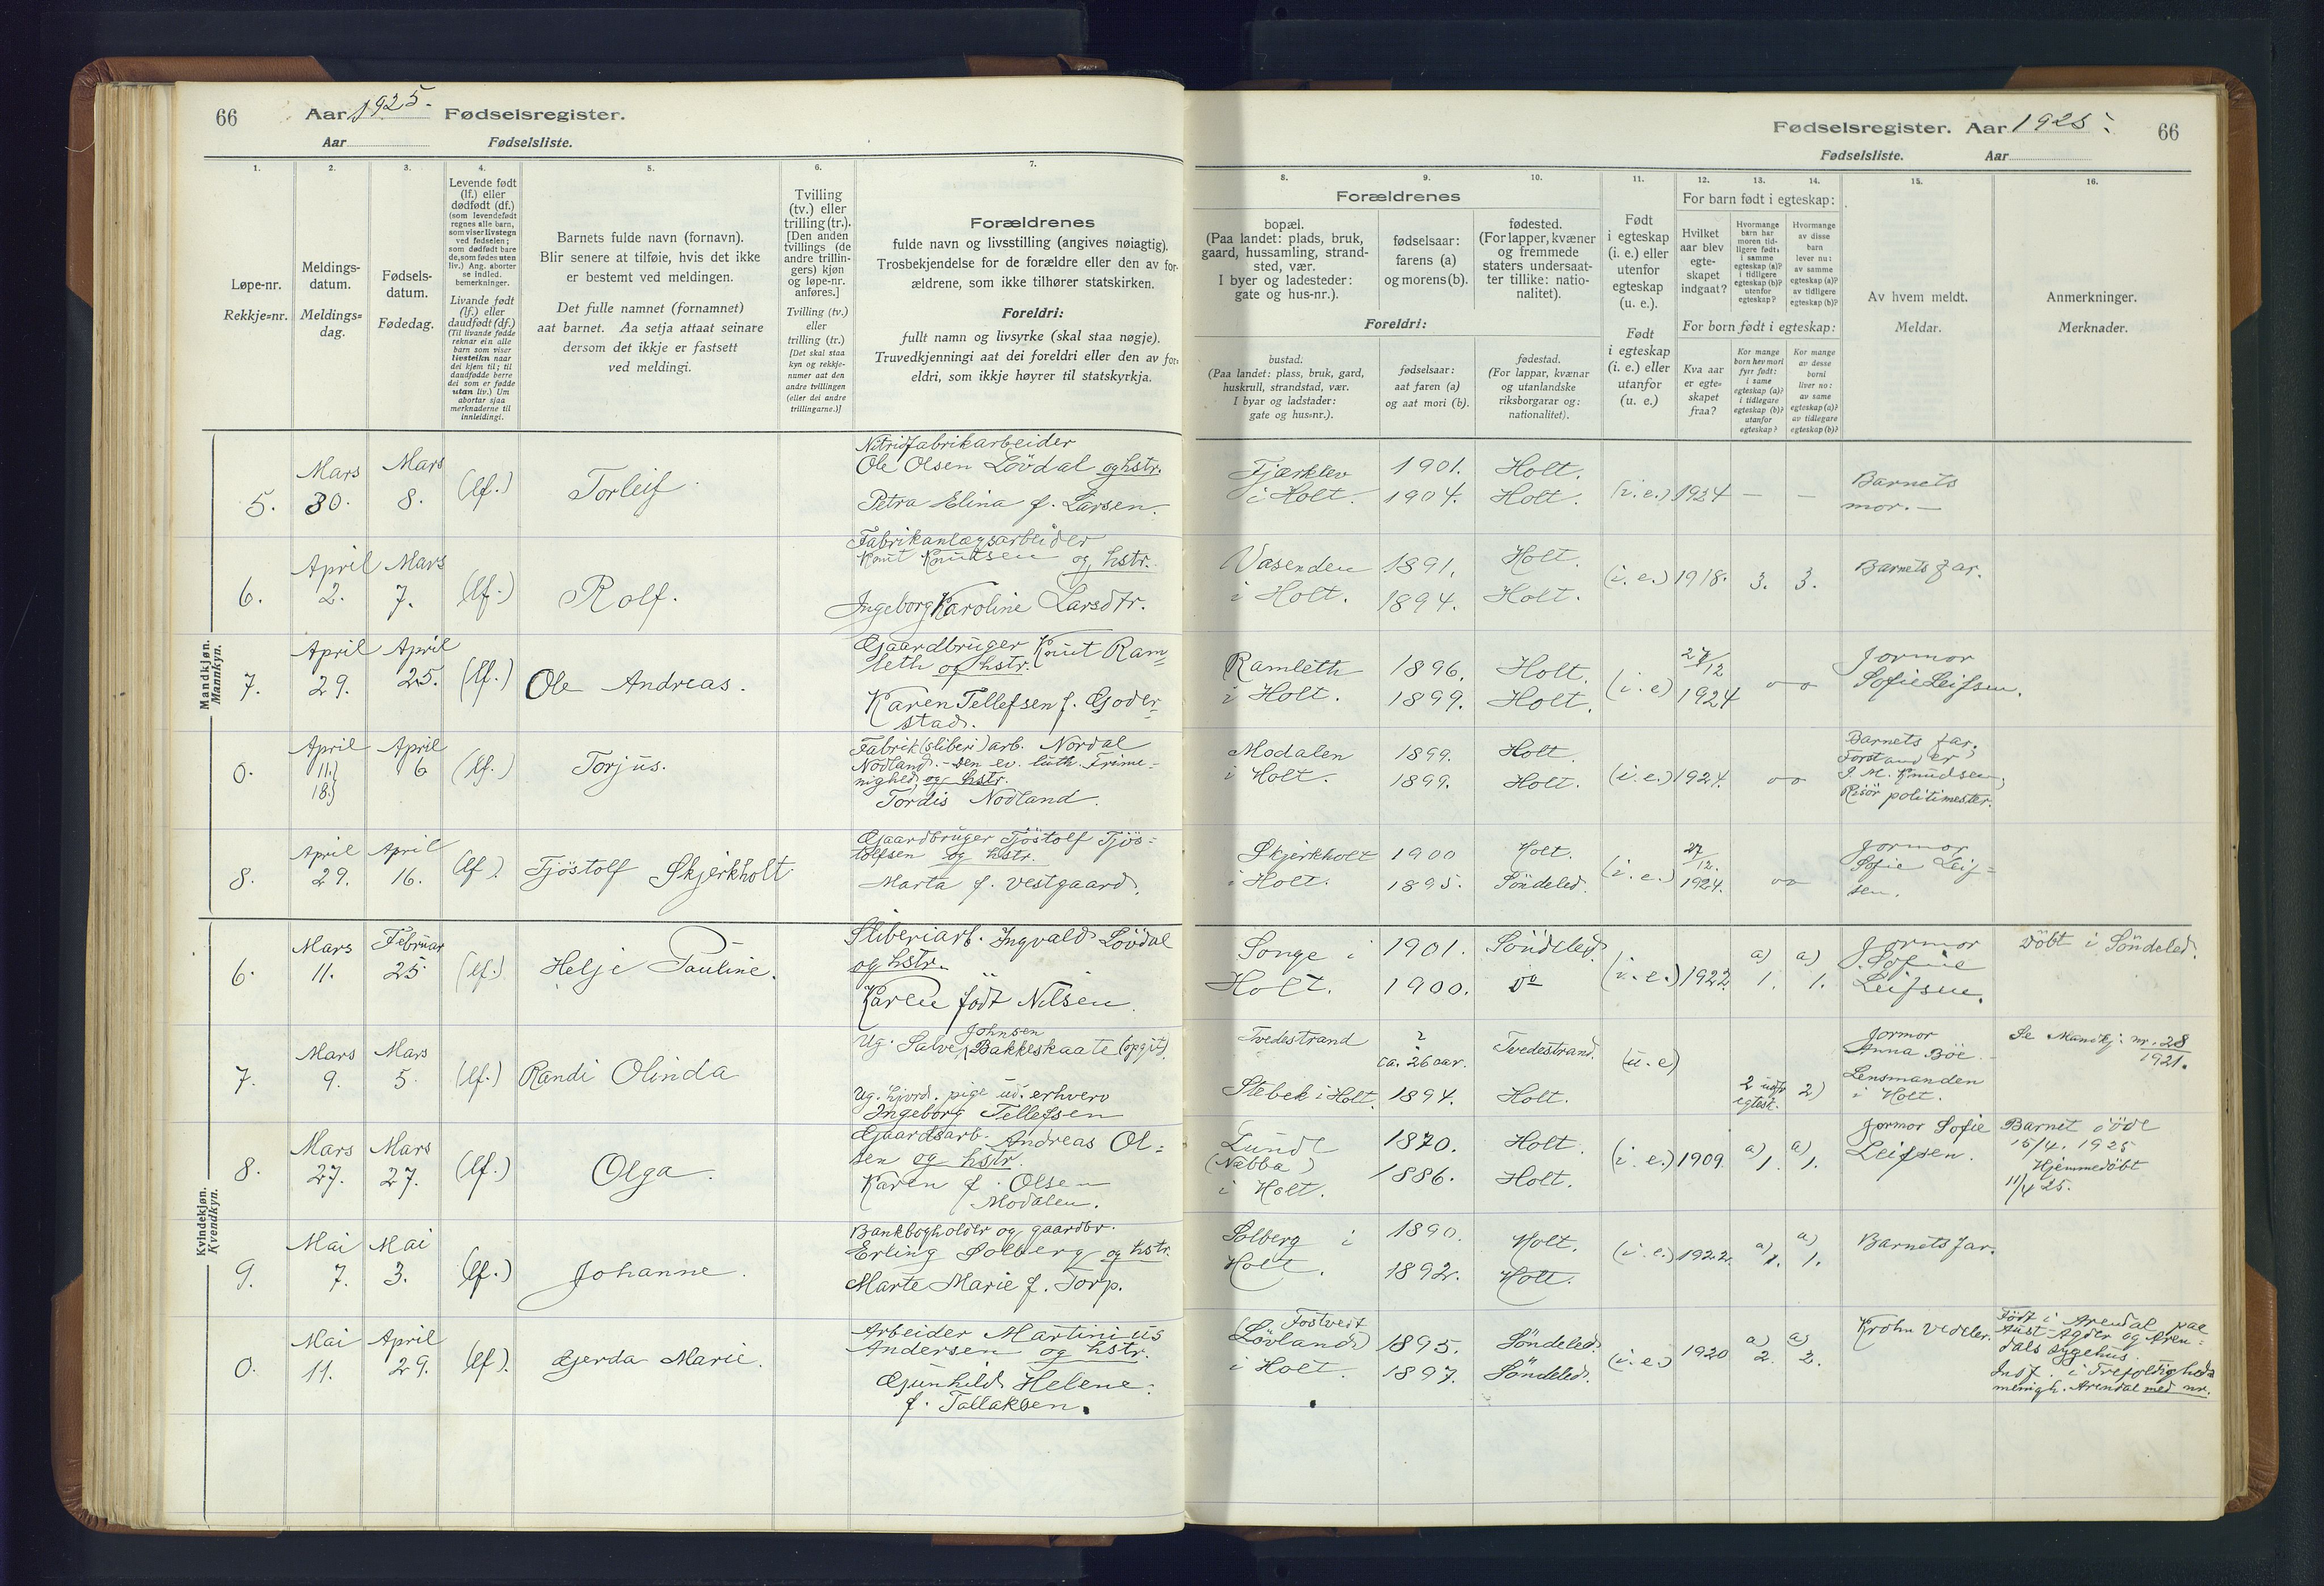 66
Aar 1925. Fødselsregister.
Aar Fødselsliste.
Fødselsregister. Aar 1925.
66
Fødselsliste. Aar
1.
Løpe-nr.
Rekkje=nr.
2.
Meldings-
datum.
Meldings=
dag.
3.
Fødsels-
datum.
Fødedag.
4.
Levende født
(lf.) eller
dødfødt (df.)
(som levendefødt
regnes alle barn,
som viser livstegn
ved fødselen;
som dødfødt bare
de, som fødes uten
liv.) Ang. aborter
se indled.
bemerkninger.
Livande født
(lf.) eller
daudfødt (df.)
(Til livande fødde
reknar ein alle
barn som viser
livsteikn naar
dei kjem til; til
daudfødde berre
dei som er fødde
utan liv.) Um
abortar sjaa
merknaderne til
innleidingi.
5.
Barnets fulde navn (fornavn).
Blir senere at tilføie, hvis det ikke
er bestemt ved meldingen.
Det fulle namnet (fornamnet)
aat barnet. Aa setja attaat seinare
dersom det ikkje er fastsett
ved meldingi.
6.
Tvilling
(tv.) eller
trilling (tr.).
[Den anden
tvillings (de
andre trillin-
gers) kjøn
og løpe-nr.
anføres.]
Tvilling (tv.)
eller
trilling (tr.)
[Det skal staa
kyn og rekkje-
numer aat den
andre tvillingen
(eller dei andre
trillingarne.)]
7.
Forældrenes
fulde navn og livsstilling (angives nøiagtig).
Trosbekjendelse for de forældre eller den av for-
ældrene, som ikke tilhører statskirken.
Foreldri:
fullt namn og livsyrke (skal staa nøgje).
Truvedkjenningi aat dei foreldri eller den av for=
eldri, som ikkje høyrer til statskyrkja.
8.
Forældrenes
bopæl.
(Paa landet: plads, bruk,
gaard, hussamling, strand-
sted, vær.
I byer og ladesteder:
gate og hus-nr.).
Foreldri:
bustad.
(Paa landet: plass, bruk, gard,
huskrull, strandstad, vær.
I byar og ladstader:
gate og hus=nr.).
9.
fødselsaar:
farens (a)
og morens (b).
fødselsaar:
aat faren (a)
og aat mori (b).
10.
fødested.
(For lapper, kvæner
og fremmede
staters undersaat-
ter tillike: natio-
nalitet).
fødestad.
(For lappar, kvænar
og utanlandske
riksborgarar og:
nationalitet).
11.
Født
i egteskap
(i. e.) eller
utenfor
egteskap
(u. e.).
Født
i egteskap
(i. e.) eller
utanfor
(u. e.)
12. 13. 14.
For barn født i egteskap:
Hvilket
aar blev
egte-
skapet
indgaat?
Hvormange
barn har
moren tid-
ligere født:
i samme
egteskap (a)?
i tidligere
egteskap (b)?
utenfor
egteskap?
Hvormange
av disse
barn
lever nu:
av samme
egteskap (a)?
av tidligere
egteskap (b)?
For born født i egteskap:
Kva aar
er egte=
skapet
fraa?
Kor mange
born hev mori
fyrr født:
i same
egteskap (a)?
i tidlegare
egteskap (b)?
utanfor
egteskap?
Kor mange
av desse
borni
liver no:
av same
egteskap (a)?
av tidlegare
egteskap (b)?
15.
Av hvem meldt.
Meldar.
16.
Anmerkninger.
Merknader.
Mandkjøn.
Mannkyn.
5. Mars 30. Mars 8. (lf.) Torleif
fabrikarbeider
Ole Olsen Lövdal og hstr.
Petra Elina f. Larsen.
Fjærklev
i Holt.
1901.
1904.
Holt.
Holt.
(i. e.) 1924 — —
Barnets
mor. —
6. April 2. Mars 7. (lf.) Rolf.
Fabrikanlægsarbeider
Knut Knutsen og hstr.
Ingeborg Karoline Larsdtr.
Vasenden
i Holt.
1891.
1894.
Holt.
Holt.
(i. e.) 1918. 3. 3.
Barnets far.
7. April 29. April 25. (lf.) Ole Andreas.
Gaardbruger Knut Ram=
leth og hstr.
Karen Tellefsen f. Goder=
stad.
Ramleth
i Holt.
1896.
1899.
Holt.
Holt.
(i. e) 27/12 1924 o o
Jormor
Sofie Leifsen.
0. April 11.} 18.} April 6 (lf.) Torjus.
Fabrik(sliberi)arb. Nordal
Nodland. - Den ev. luth. Frime=
nighed, og hstr.
Tordis Nodland.
Modalen
i Holt.
1899.
1899.
Holt.
Holt.
(i. e.) 1924. o o
Barnets far.
Forstander
J. M. Knudsen;
Risör politimester.
8. April 29. April 16. (lf.) Tjöstolf Skjerkholt
Gaardbruger Tjöstolf Tjös=
tolfsen og hstr.
Marta f. Vestgaard.
Skjerkholt
i Holt.
1900
1895.
Holt.
Söndeled.
(i. e.) 27/12. 1924. o o
Jormor
Sofie Leif=
sen.
Kvindekjøn.
Kvendkyn.
6. Mars 11. Februar 25 (lf.) Helje Pauline.
Sliberiarb. Ingvald Lövdal
og hstr.
Karen födt Nilsen.
Songe i
Holt.
1901.
1900.
Söndeled.
do
(i. e.) 1922. a) 1. a) 1.
Jormor
Sofie
Leifsen.
Döbt i Söndeled.
7. Mars 9. Mars 5. (lf.) Randi Olinda
Johnsen
Ug. Salve Bakkeskaate (opgit).
Ug. hjvrd. pige ud. erhverv
Ingeborg Tellefsen
Tvedestrand
Stebek i Holt.
?
ca. 26 aar.
1894.
Tvedestrand.
Holt.
(u. e) 2 udfr egtesk. 2)
Jormor
Anna Böe
Lensmanden
i Holt.
Se Mandkj. nr. 28
1921.
8. Mars 27. Mars 27. (lf.) Olga.
Gaardsarb. Andreas Ol=
sen og hstr.
Karen f. Olsen
Modalen.
Lunde
(Næbba)
i Holt.
1870.
1886.
Holt.
Holt.
(i. e.) 1909. a) 1. a) 1.
Jormor Sofie
Leifsen.
Barnet död
15/4. 1925
Hjemmedöbt
11/4 25.
9. Mai 7. Mai 3. (lf.) Johanne.
Bankbogholder og gaardbr.
Erling Solberg og hstr.
Marte Marie f. Torp.
Solberg i
Holt.
1890.
1892.
Holt.
Holt.
(i. e.) 1922. a) 1. a) 1.
Barnets far.
0. Mai 11. April 29. (lf). Gjerda Marie.
Arbeider Martinius
Andersen og hstr.
Gunhild Helene.
f. Tallaksen.
Fostveit
(Lövland)
i Holt.
1895.
1897.
Söndeled.
Söndeled.
(i. e.) 1920 a) 2. a) 2.
Krohn Vedeler.
Födt i Arendal paa
Aust-Agder og Aren=
dals sygehus.
Indf. i Trefoldigheds
menigh. Arendal med nr.